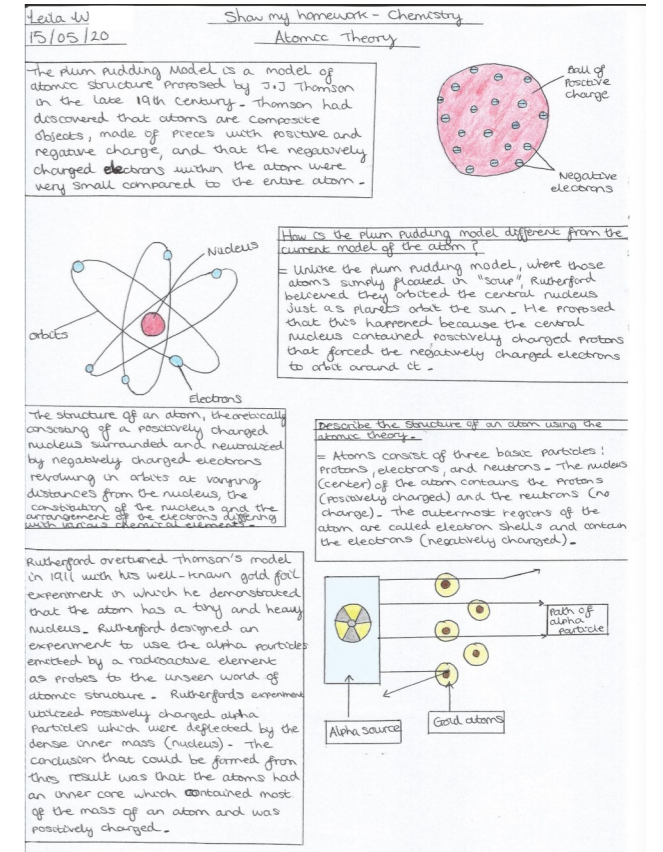 Leila W
Show my homework - Chemistry
15/05/20
Atomic Theory
The Plum Pudding Model is a model of
atomic structure proposed by J.J Thomson
in the late 19th Century - Thomson had
discovered that atoms are composite
objects, made of pieces with positive and
negative charge, and that the negatively
charged electrons within the atom were
very small compared to the entire atom -
Ball of
Positive
charge
Negative
electrons
Nucleus
orbits
Electrons
How is the plum pudding model different from the
current model of the atom?
= Unlike the plum pudding model, where those
atoms simply floated in "soup", Rutherford
believed they orbited the central nucleus
just as planets orbit the sun - He proposed
that this happened because the central
nucleus contained positively charged protons
that forced the negatively charged electrons
to orbit around it -
The structure of an atom, theoretically
consisting of a positively charged
nucleus surrounded and neutralized
by negatively charged electrons
revolving in orbits at varying
distances from the nucleus, the
constitution of the nucleus and the
arrangement of the electrons differing
with various chemical elements -
Describe the structure of an atom using the
atomic theory -
= Atoms consist of three basic particles:
protons, electrons, and neutrons - The nucleus
(center) of the atom contains the protons
(positively charged) and the neutrons (no
charge) - The outermost regions of the
atom are called electron shells and contain
the electrons (negatively charged) -
Rutherford overturned Thomson's model
in 1911 with his well-known gold foil
experiment in which he demonstrated
that the atom has a tiny and heavy
nucleus - Rutherford designed an
experiment to use the alpha particles
emitted by a radioactive element
as probes to the unseen world of
atomic structure - Rutherfords experiment
utilized positively charged alpha
Particles which were deflected by the
dense inner mass (nucleus) - The
conclusion that could be formed from
this result was that the atoms had
an inner core which contained most
of the mass of an atom and was
positively charged -
Path of
alpha
particle
Alpha source
Gold atoms